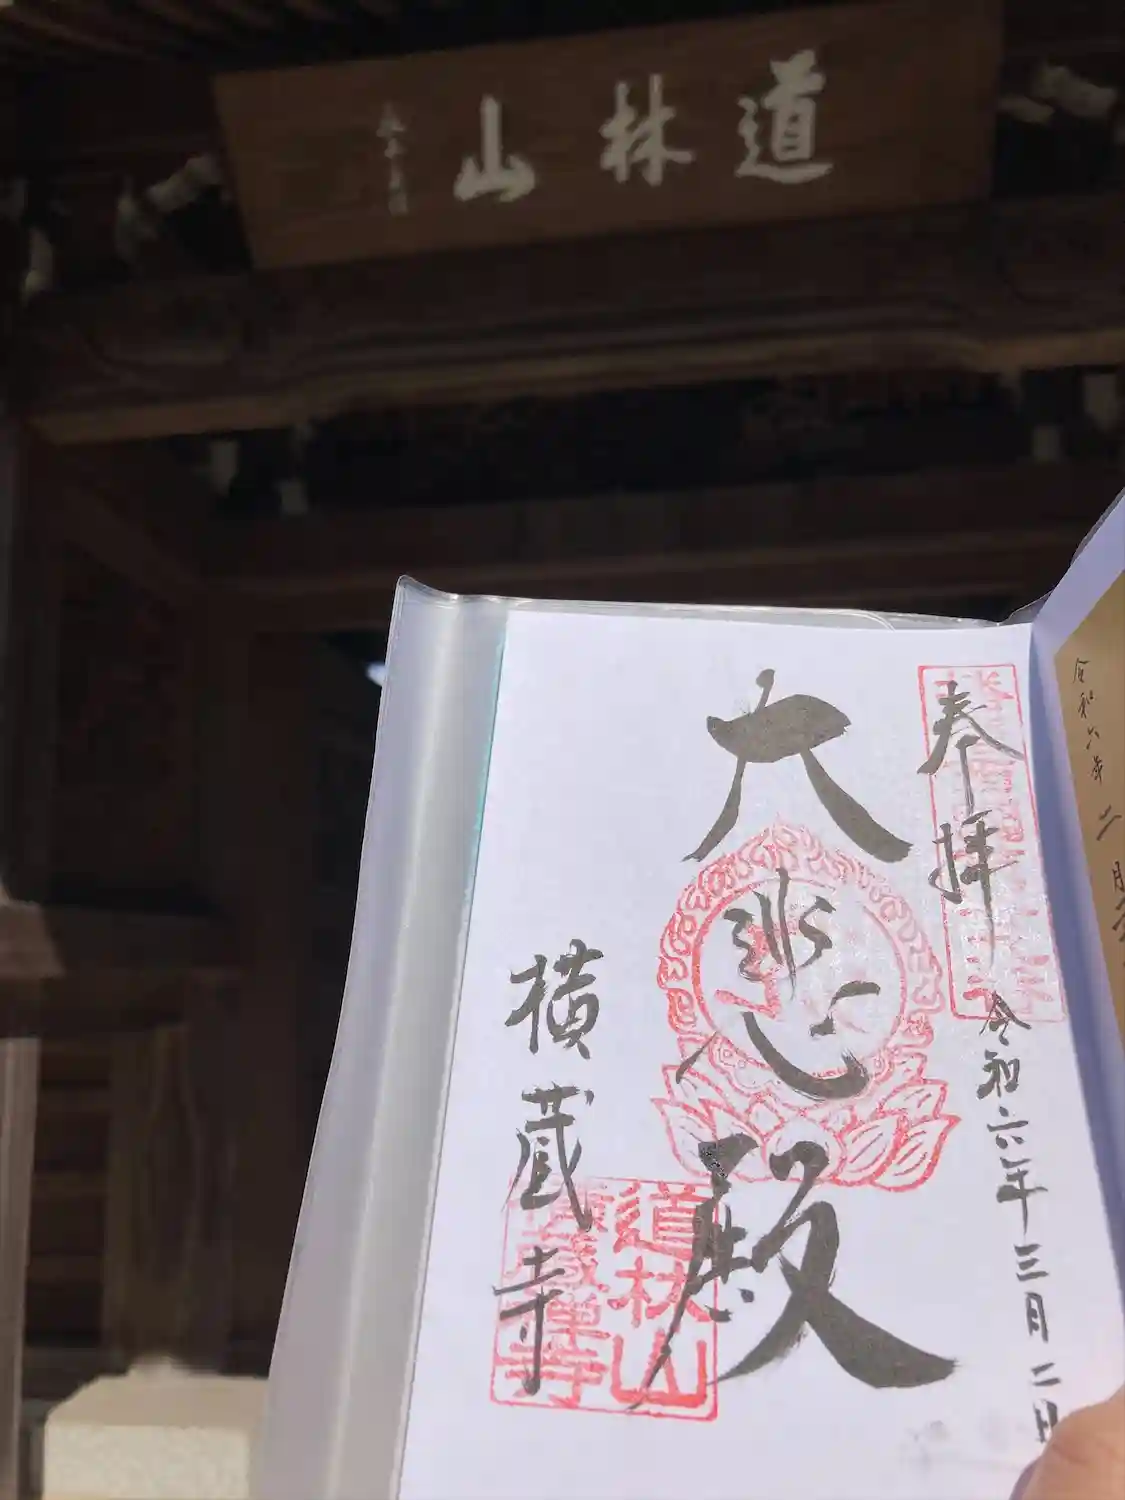 道林山
奉拝
令和六年三月二日
大悲殿
横蔵寺
道林山
横蔵禅寺
令和六年二月